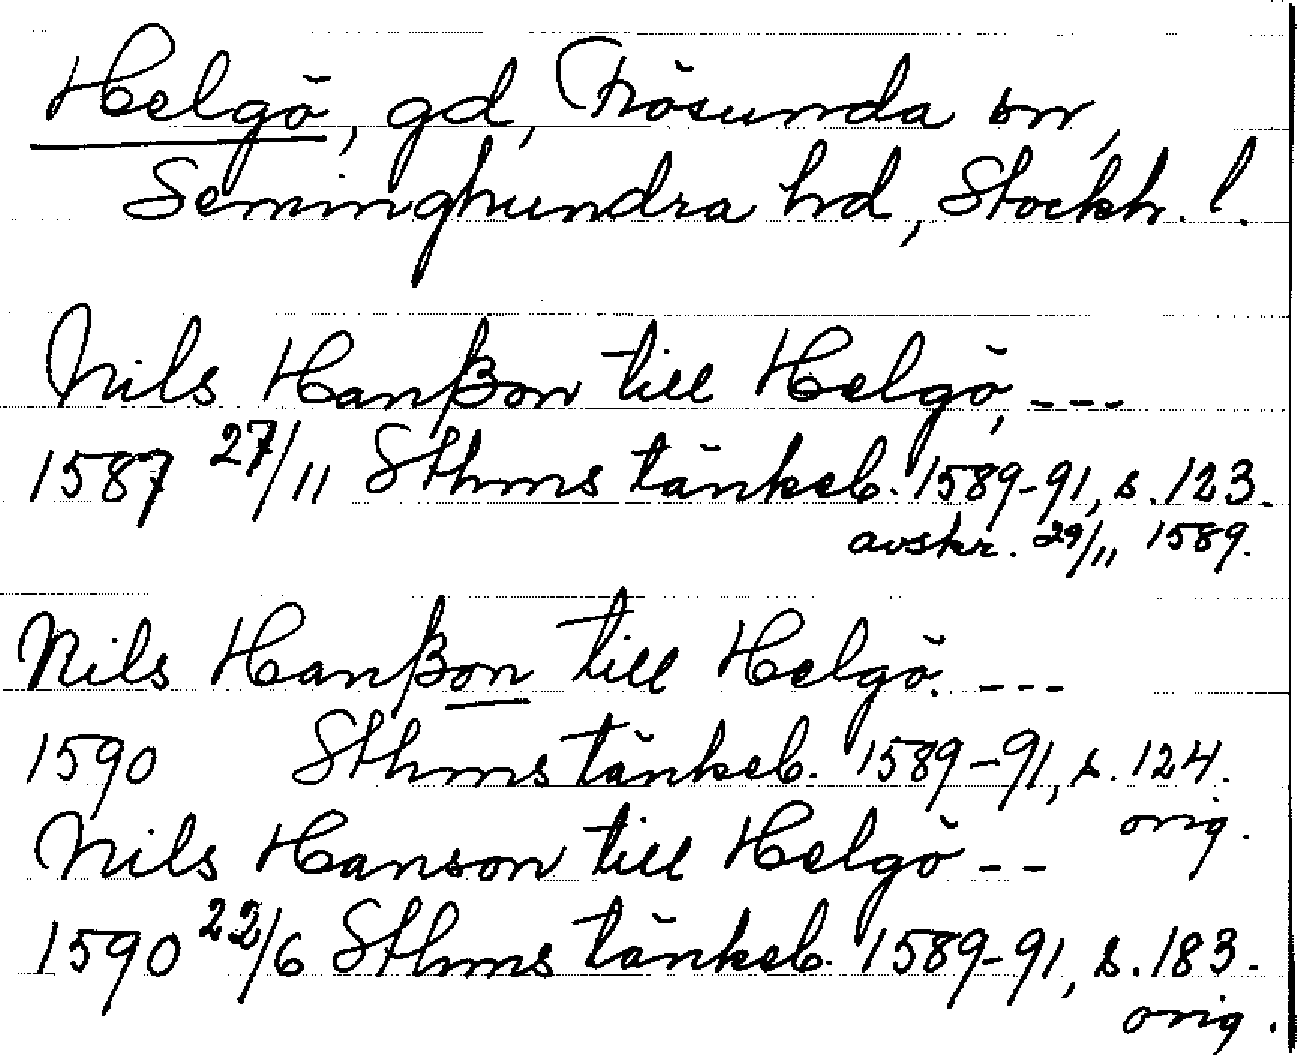 Helgö, gd, Frösunda sn,
Seminghundra hd, Stockh. l.
Nils Hanßon till Helgö, ---
1587 27/11 Sthms tänkeb. 1589-91, s. 123.
avskr. 29/11 1589.
Nils Hanßon till Helgö. ---
1590 Sthms tänkeb. 1589-91, s. 124.
orig.
Nils Hanson till Helgö --
1590 22/6 Sthms tänkeb. 1589-91, s. 183.
orig.